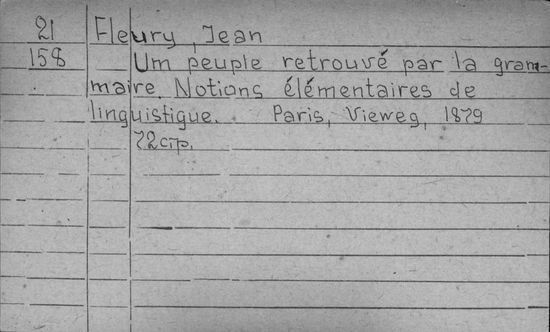 21 Fleury, Jean
158 Um peuple retrouvé par la gram-
maire. Notions élémentaires de
linguistique. Paris, Vieweg, 1879
72 стр.